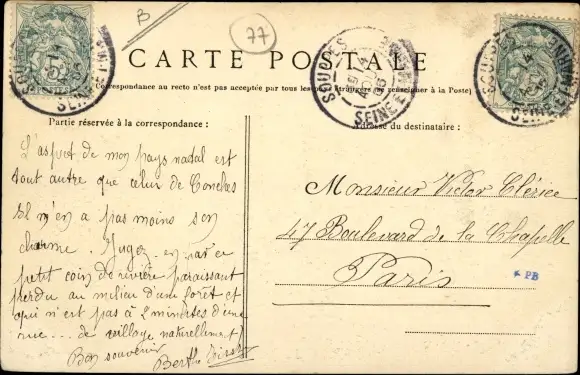 B
77
CARTE POSTALE
(Correspondance au recto n'est pas acceptée par tous les pays étrangers (se renseigner à la Poste)
SOUPPES
SEINE ET MARNE
Partie réservée à la correspondance :
Adresse du destinataire :
L'aspect de mon pays natal est
tout autre que celui de Conches
Il n'en a pas moins son
charme. Jugez-en par ce
petit coin de rivière paraissant
perdu au milieu d'une forêt et
qui n'est pas à 2 minutes d'une
rue... de village naturellement!
Bon souvenir
Berthe
Monsieur Victor Clérice
47 Boulevard de la Chapelle
Paris
* PB